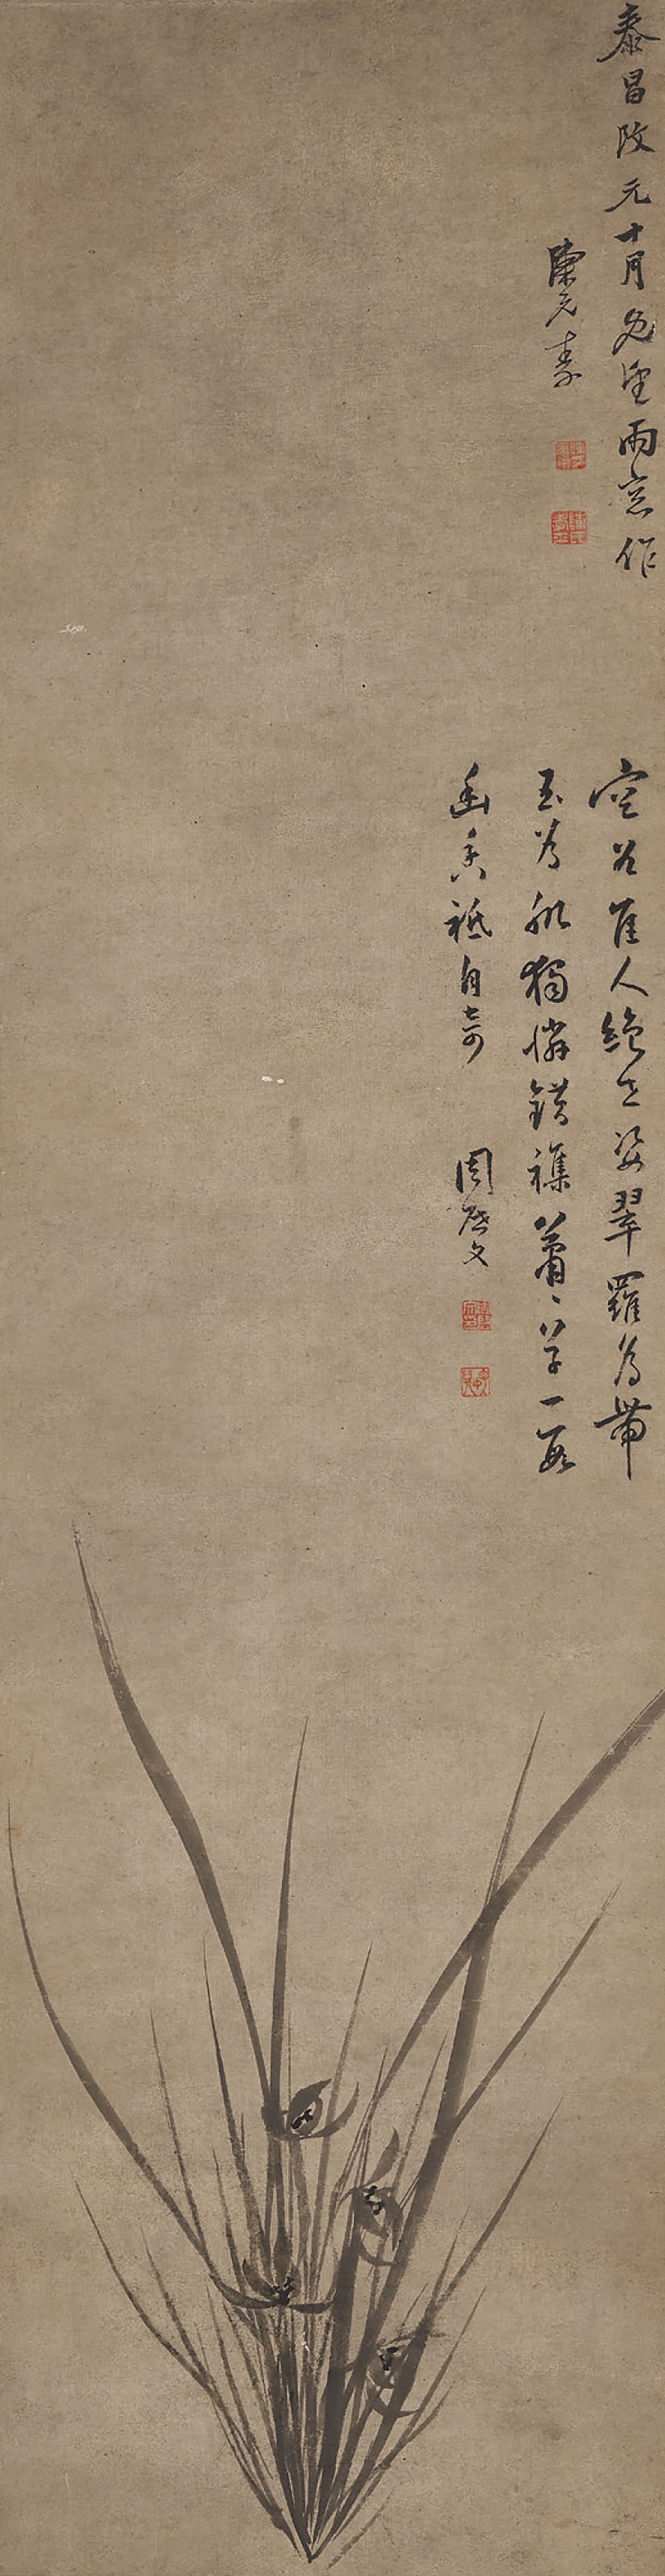 泰昌改元十月既望雨窓作
陳元素
空谷佳人絕世姿翠羅為帶
玉為肌獨憐錯襍蕭〻草一段
幽香祗自奇
周文